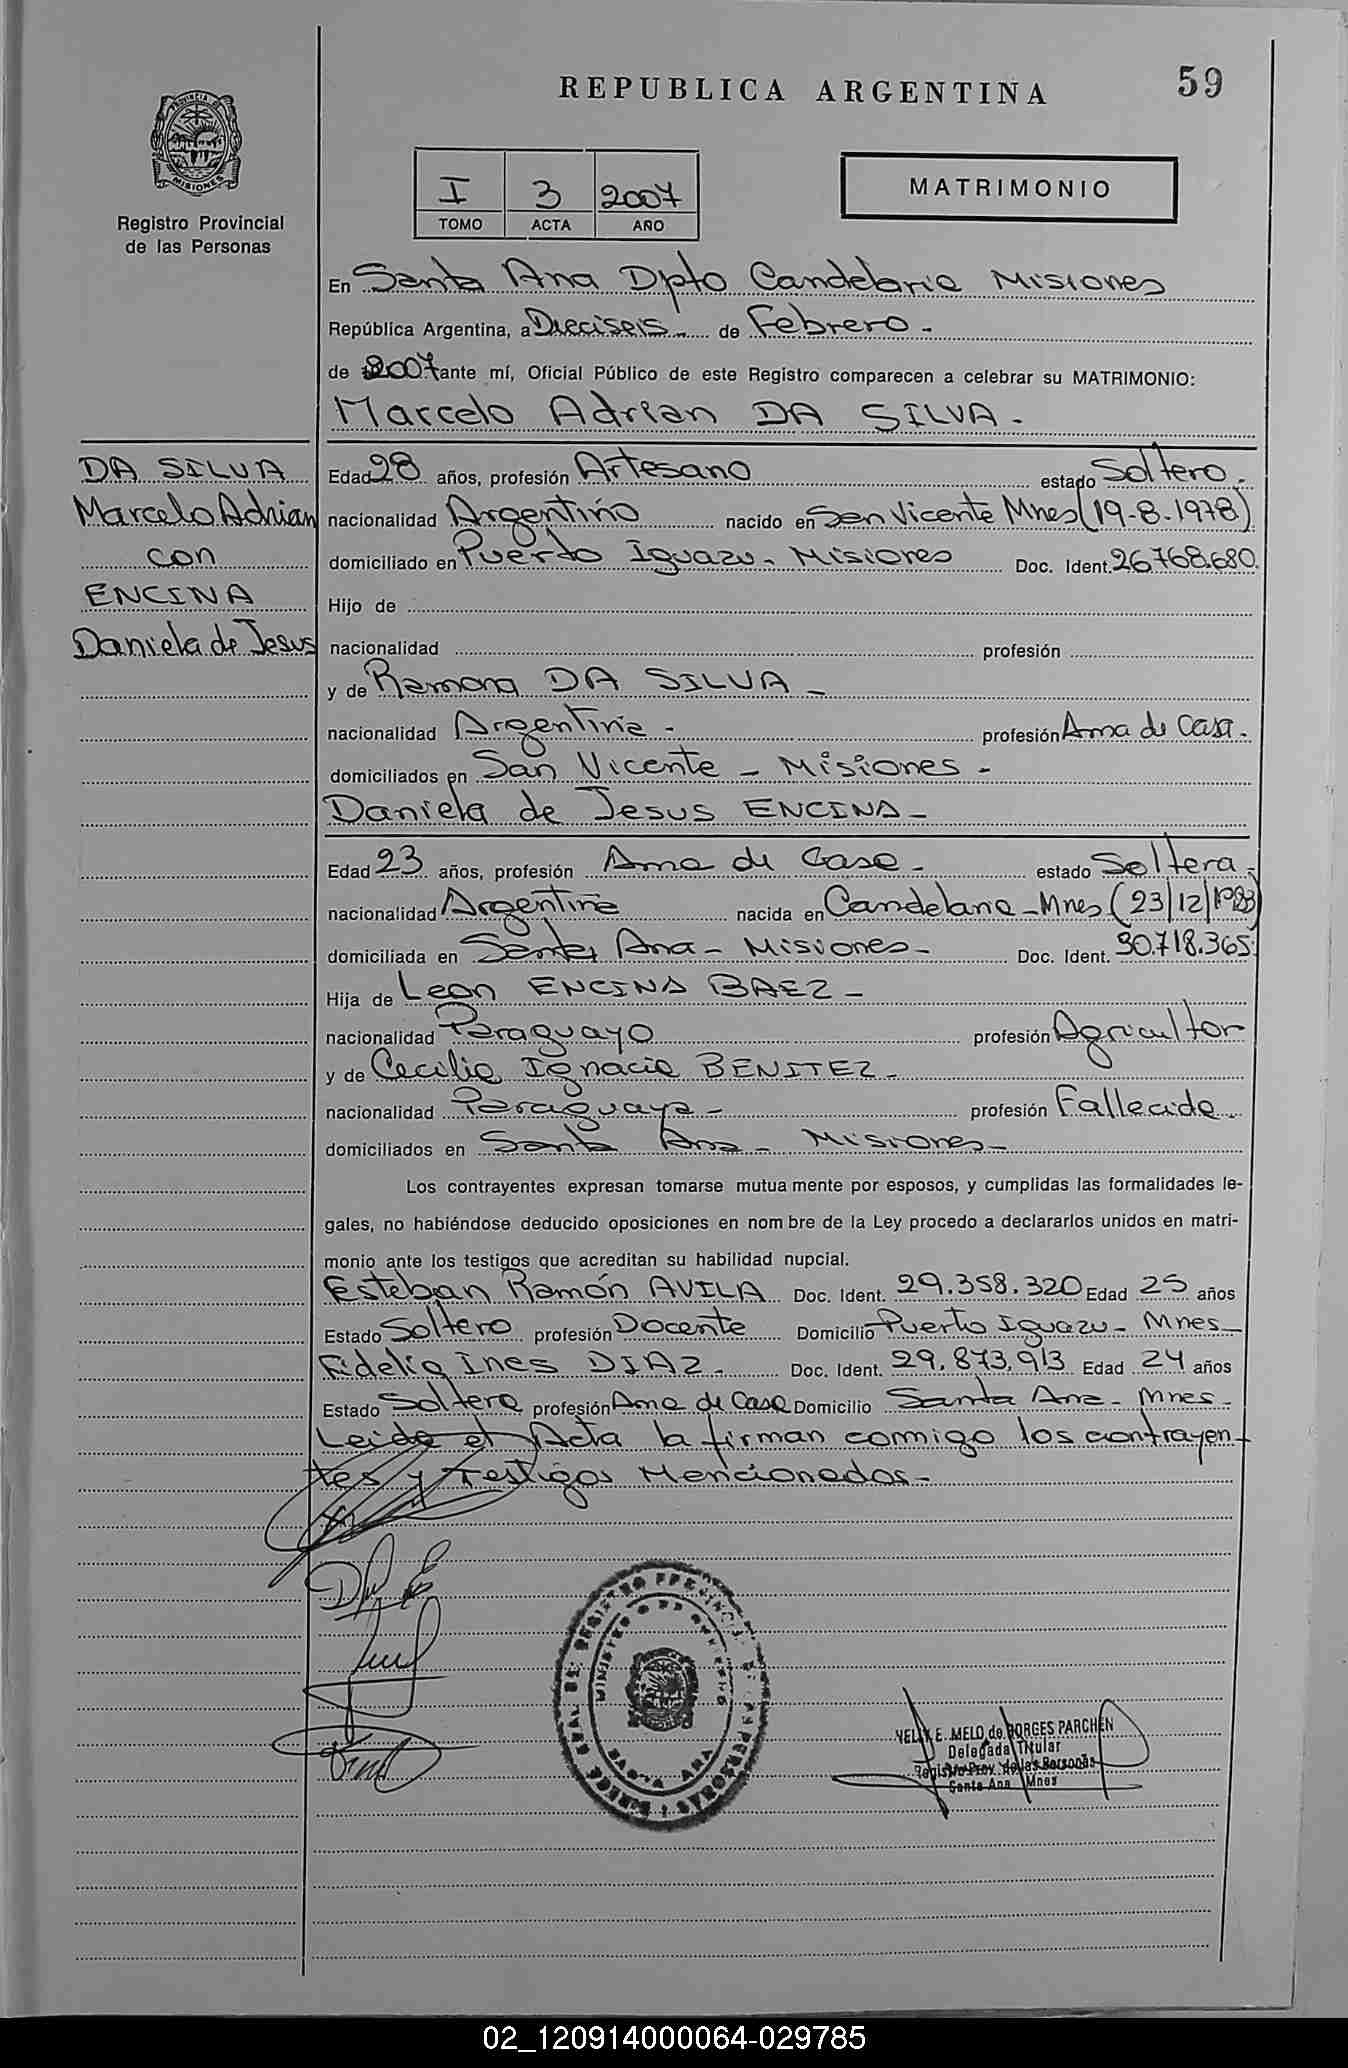 REPUBLICA ARGENTINA
59
PROVINCIA DE MISIONES
Registro Provincial
de las Personas
I 3 2007
TOMO ACTA AÑO
MATRIMONIO
En Santa Ana Dpto Candelaria Misiones
República Argentina, a Dieciseis de Febrero.-
de 2007 ante mí, Oficial Público de este Registro comparecen a celebrar su MATRIMONIO:
Marcelo Adrian DA SILVA.-
DA SILVA
Marcelo Adrian
con
ENCINA
Daniela de Jesus
Edad 28 años, profesión Artesano estado Soltero.-
nacionalidad Argentino nacido en San Vicente Mnes (19-8-1978)
domiciliado en Puerto Iguazu - Misiones Doc. Ident. 26.768.680.
Hijo de
nacionalidad profesión
y de Ramona DA SILVA -
nacionalidad Argentina - profesión Ama de Casa.-
domiciliados en San Vicente - Misiones -
Daniela de Jesus ENCINA -
Edad 23 años, profesión Ama de Casa - estado Soltera.-
nacionalidad Argentina nacida en Candelaria - Mnes (23/12/1983)
domiciliada en Santa Ana - Misiones - Doc. Ident. 30.718.365.
Hija de Leon ENCINA BAEZ -
nacionalidad Paraguayo profesión Agricultor
y de Cecilia Ignacia BENITEZ -
nacionalidad Paraguaya - profesión Fallecida.
domiciliados en Santa Ana - Misiones -
Los contrayentes expresan tomarse mutua mente por esposos, y cumplidas las formalidades le-
gales, no habiéndose deducido oposiciones en nom bre de la Ley procedo a declararlos unidos en matri-
monio ante los testigos que acreditan su habilidad nupcial.
Esteban Ramón AVILA Doc. Ident. 29.358.320 Edad 25 años
Estado Soltero profesión Docente Domicilio Puerto Iguazu - Mnes -
Fidelia Ines DIAZ - Doc. Ident. 29.873.913 Edad 24 años
Estado Soltera profesión Ama de Casa Domicilio Santa Ana - Mnes -
Leida el Acta la firman conmigo los contrayen-
tes y Testigos Mencionados -
REGISTRO PROVINCIAL DE LAS PERSONAS
MINISTERIO DE GOBIERNO
SANTA ANA
NELLY E. MELO de BORGES PARCHEN
Delegada Titular
Registro Prov. de las Personas
Santa Ana Mnes
02_120914000064-029785